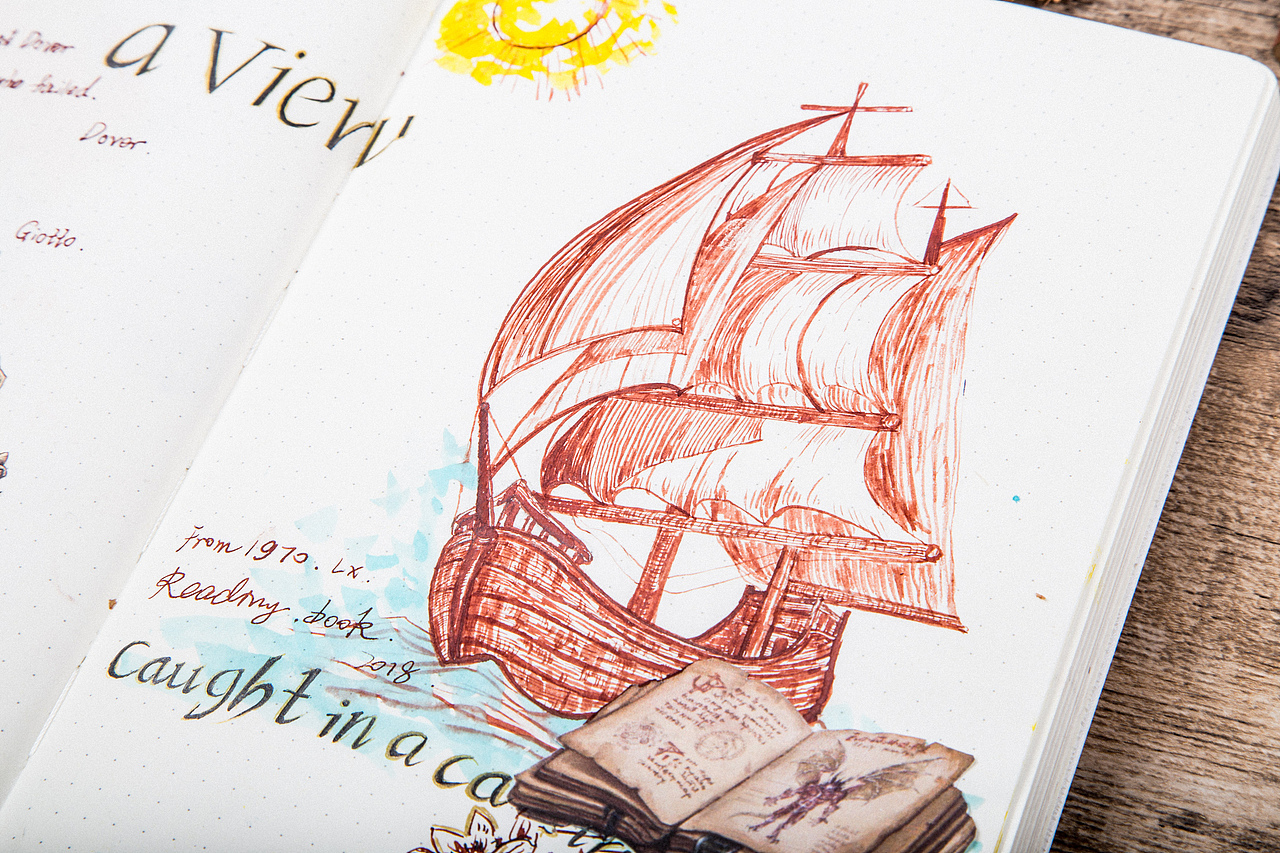 Dover
a View
failed.
Dover.
Giotto.
From 1970. Lx.
Reading .book.
2018
caught in a ca